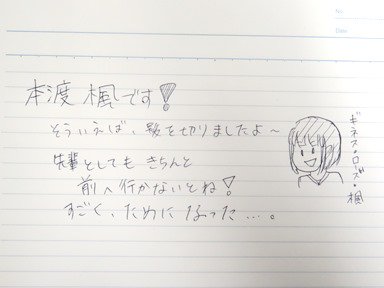 No.
Date
本渡 楓です!
そういえば、髪を切りましたよ~
先輩としても きちんと
前へ行かないとね!
すごく、ためになった…。
ギネス・ローズ・楓